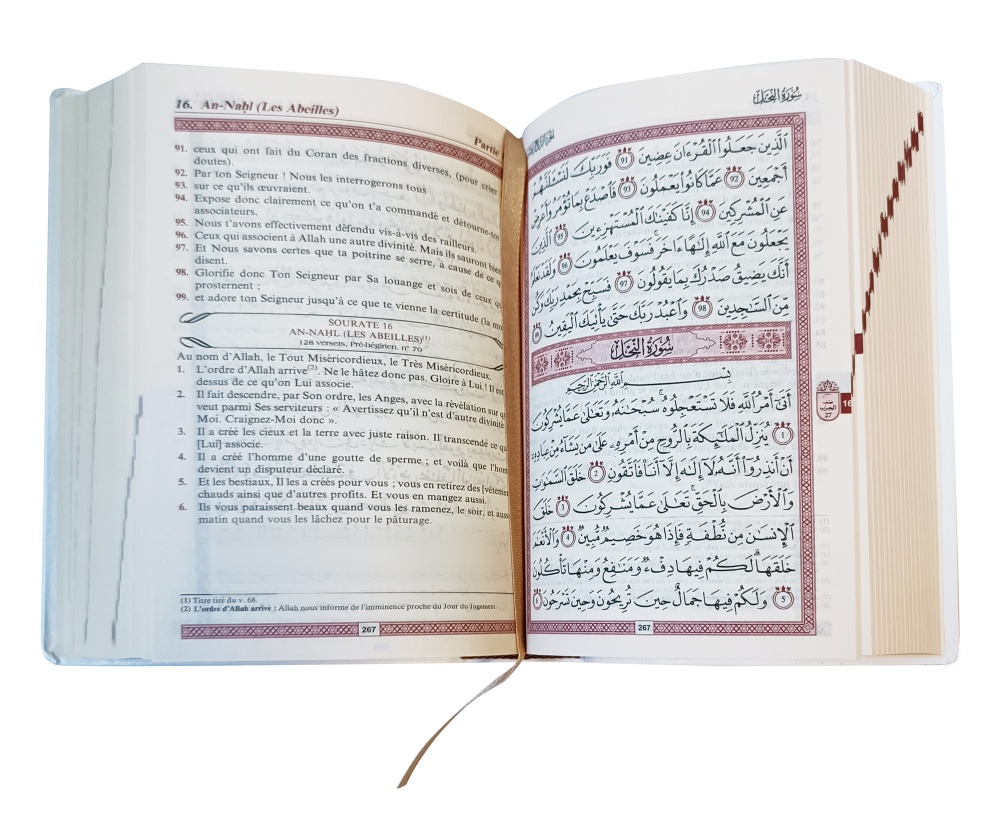 16. An-Naḥl (Les Abeilles)
Partie
91. ceux qui ont fait du Coran des fractions diverses, (pour créer
doutes).
92. Par ton Seigneur ! Nous les interrogerons tous
93. sur ce qu'ils œuvraient.
94. Expose donc clairement ce qu'on t'a commandé et détourne-toi
associateurs.
95. Nous t'avons effectivement défendu vis-à-vis des railleurs.
96. Ceux qui associent à Allah une autre divinité. Mais ils sauront bien
97. Et Nous savons certes que ta poitrine se serre, à cause de ce q
disent.
98. Glorifie donc Ton Seigneur par Sa louange et sois de ceux qu
prosternent ;
99. et adore ton Seigneur jusqu'à ce que te vienne la certitude (la mo
SOURATE 16
AN-NAHL (LES ABEILLES)(1)
128 versets, Pré-hégirien. n° 70
Au nom d'Allah, le Tout Miséricordieux, le Très Miséricordieux.
1. L'ordre d'Allah arrive(2). Ne le hâtez donc pas. Gloire à Lui ! Il est
dessus de ce qu'on Lui associe.
2. Il fait descendre, par Son ordre, les Anges, avec la révélation sur q
veut parmi Ses serviteurs : « Avertissez qu'il n'est d'autre divinité
Moi. Craignez-Moi donc ».
3. Il a créé les cieux et la terre avec juste raison. Il transcende ce qu
[Lui] associe.
4. Il a créé l'homme d'une goutte de sperme ; et voilà que l'hom
devient un disputeur déclaré.
5. Et les bestiaux, Il les a créés pour vous ; vous en retirez des [vêteme
chauds ainsi que d'autres profits. Et vous en mangez aussi.
6. Ils vous paraissent beaux quand vous les ramenez, le soir, et aussi
matin quand vous les lâchez pour le pâturage.
(1) Titre tiré du v. 68.
(2) L'ordre d'Allah arrive : Allah nous informe de l'imminence proche du Jour du Jugement.
267
سُورَةُ النَّحْلِ
ٱلَّذِينَ جَعَلُوا۟ ٱلْقُرْءَانَ عِضِينَ 91 فَوَرَبِّكَ لَنَسْـَٔلَنَّهُمْ
أَجْمَعِينَ 92 عَمَّا كَانُوا۟ يَعْمَلُونَ 93 فَٱصْدَعْ بِمَا تُؤْمَرُ وَأَعْرِضْ
عَنِ ٱلْمُشْرِكِينَ 94 إِنَّا كَفَيْنَٰكَ ٱلْمُسْتَهْزِءِينَ 95 ٱلَّذِينَ
يَجْعَلُونَ مَعَ ٱللَّهِ إِلَٰهًا ءَاخَرَ فَسَوْفَ يَعْلَمُونَ 96 وَلَقَدْ نَعْلَمُ
أَنَّكَ يَضِيقُ صَدْرُكَ بِمَا يَقُولُونَ 97 فَسَبِّحْ بِحَمْدِ رَبِّكَ وَكُن
مِّنَ ٱلسَّٰجِدِينَ 98 وَٱعْبُدْ رَبَّكَ حَتَّىٰ يَأْتِيَكَ ٱلْيَقِينُ
سُورَةُ النَّحْلِ
بِسْمِ ٱللَّهِ ٱلرَّحْمَٰنِ ٱلرَّحِيمِ
أَتَىٰٓ أَمْرُ ٱللَّهِ فَلَا تَسْتَعْجِلُوهُ سُبْحَٰنَهُۥ وَتَعَٰلَىٰ عَمَّا يُشْرِكُونَ
1 يُنَزِّلُ ٱلْمَلَٰٓئِكَةَ بِٱلرُّوحِ مِنْ أَمْرِهِۦ عَلَىٰ مَن يَشَآءُ مِنْ عِبَادِهِۦٓ
أَنْ أَنذِرُوٓا۟ أَنَّهُۥ لَآ إِلَٰهَ إِلَّآ أَنَا۠ فَٱتَّقُونِ 2 خَلَقَ ٱلسَّمَٰوَٰتِ
وَٱلْأَرْضَ بِٱلْحَقِّ تَعَٰلَىٰ عَمَّا يُشْرِكُونَ 3 خَلَقَ
ٱلْإِنسَٰنَ مِن نُّطْفَةٍ فَإِذَا هُوَ خَصِيمٌ مُّبِينٌ 4 وَٱلْأَنْعَٰمَ
خَلَقَهَا لَكُمْ فِيهَا دِفْءٌ وَمَنَٰفِعُ وَمِنْهَا تَأْكُلُونَ
5 وَلَكُمْ فِيهَا جَمَالٌ حِينَ تُرِيحُونَ وَحِينَ تَسْرَحُونَ 6
نصف
الحزب
27
16
267